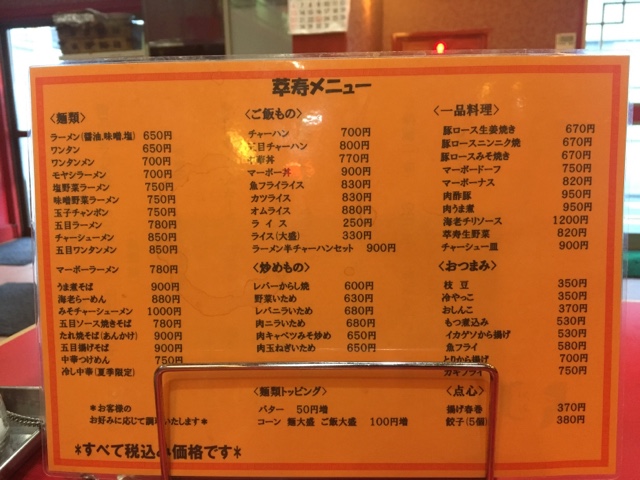 萃寿メニュー
〈麺類〉
ラーメン(醤油,味噌,塩) 650円
ワンタン 650円
ワンタンメン 700円
モヤシラーメン 700円
塩野菜ラーメン 750円
味噌野菜ラーメン 750円
玉子チャンポン 750円
五目ラーメン 780円
チャーシューメン 850円
五目ワンタンメン 850円
マーボーラーメン 780円
うま煮そば 900円
海老らーめん 880円
みそチャーシューメン 1000円
五目ソース焼きそば 780円
たれ焼そば(あんかけ) 900円
五目揚げそば 900円
中華つけめん 750円
冷し中華(夏季限定)
*お客様の
お好みに応じて調理いたします*
*すべて税込み価格です*
〈ご飯もの〉
チャーハン 700円
五目チャーハン 800円
中華丼 770円
マーボー丼 900円
魚フライライス 830円
カツライス 830円
オムライス 880円
ライス 250円
ライス(大盛) 330円
ラーメン半チャーハンセット 900円
〈炒めもの〉
レバーからし焼 600円
野菜いため 630円
レバニラいため 680円
肉ニライため 680円
肉キャベツみそ炒め 650円
肉玉ねぎいため 650円
〈麺類トッピング〉
バター 50円増
コーン 麺大盛 ご飯大盛 100円増
〈一品料理〉
豚ロース生姜焼き 670円
豚ロースニンニク焼 670円
豚ロースみそ焼き 670円
マーボードーフ 750円
マーボーナス 820円
肉酢豚 950円
肉うま煮 950円
海老チリソース 1200円
萃寿生野菜 820円
チャーシュー皿 900円
〈おつまみ〉
枝豆 350円
冷やっこ 350円
おしんこ 370円
もつ煮込み 530円
イカゲソから揚げ 530円
魚フライ 580円
とりから揚げ 700円
カキフライ 750円
〈点心〉
揚げ春巻 370円
餃子(5個) 380円